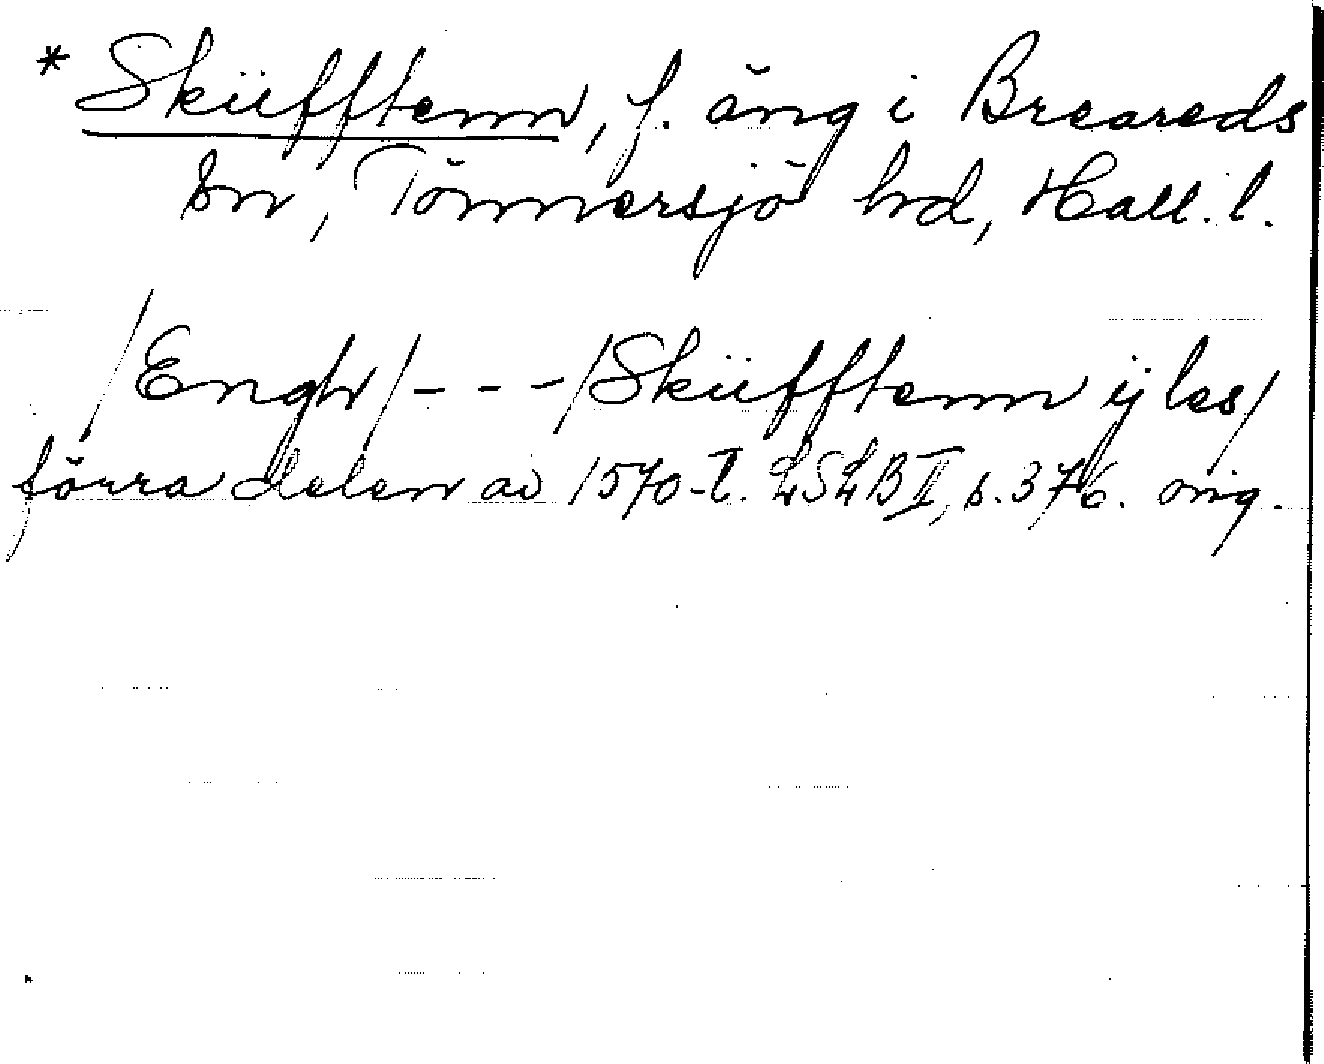 * Skiifftenn, f. äng i Breareds
sn, Tönnersjö hd, Hall. l.
/Engh/ - - - /Skiifftenn ij les/
förra delen av 1570-t. LSLB II, s. 376. orig.